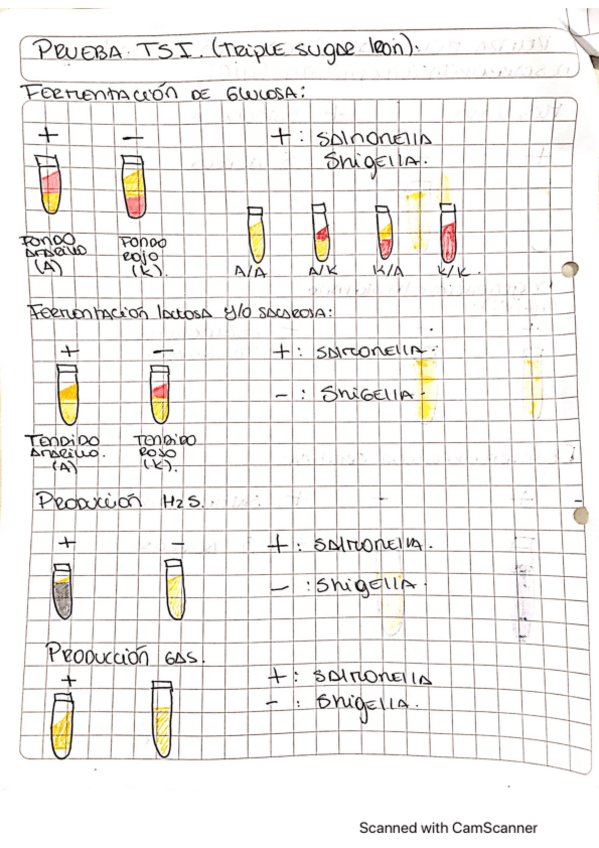 PRUEBA TSI. (TRIPLE SUGAR IRON).
FERMENTACIÓN DE GLUCOSA:
+ − + : SALMONELLA
Shigella.
FONDO AMARILLO (A)
FONDO ROJO (K).
A/A A/K K/A K/K.
FERMENTACIÓN LACTOSA Y/O SACAROSA:
+ − + : SALMONELLA.
− : SHIGELLA.
TENDIDO AMARILLO. (A)
TENDIDO ROJO (K).
PRODUCCIÓN H2S.
+ − + : SALMONELLA.
− : Shigella.
PRODUCCIÓN GAS.
+ − + : SALMONELLA
− : Shigella.
Scanned with CamScanner